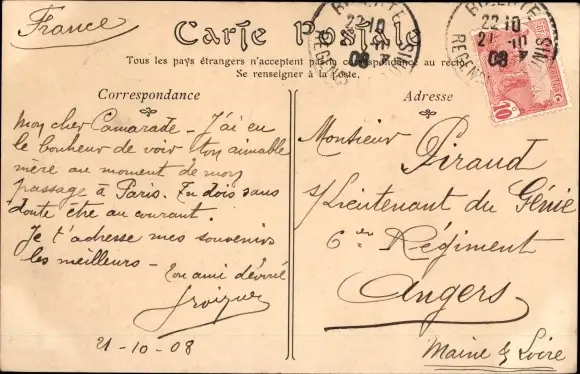 France
Carte Postale
Tous les pays étrangers n'acceptent pas la correspondance au recto
Se renseigner à la poste.
BIZERTE
22 10
08
BIZERTE
22 10
08
10
Correspondance
Mon cher Camarade - J'ai eu
le bonheur de voir ton aimable
mère au moment de mon
passage à Paris. Tu dois sans
doute être au courant.
Je t'adresse mes souvenirs
les meilleurs -
Ton ami dévoué
21-10-08
Adresse
Monsieur Piraud
s/Lieutenant du Génie
6e Régiment
Angers
Maine & Loire